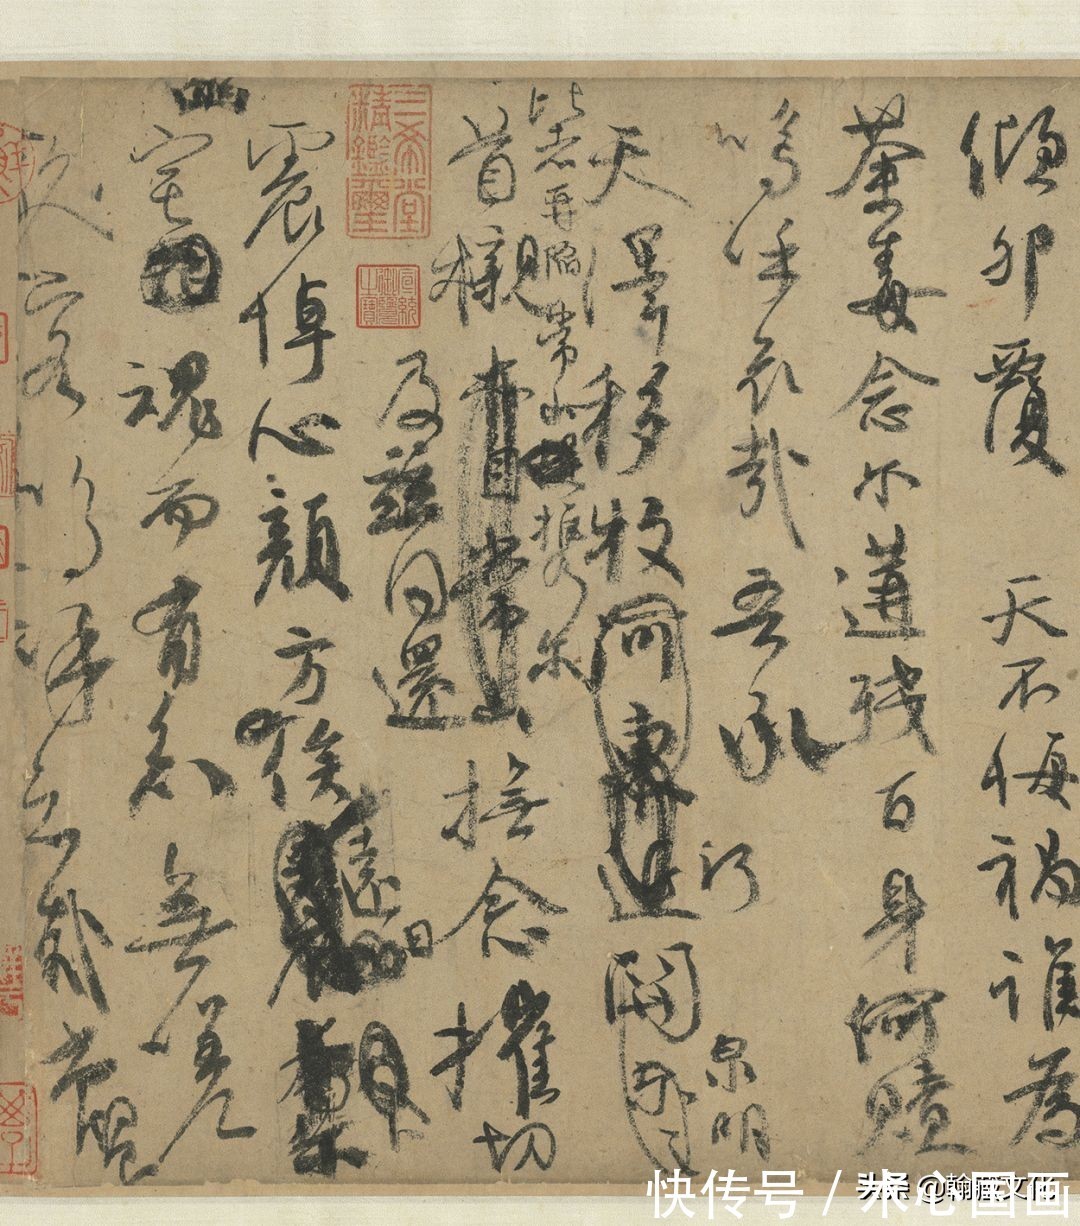 傾卵覆天不悔禍誰為
荼毒念爾遘殘百身何贖
嗚呼哀哉吾承
天澤移牧河關
泉明
比者再陷常山攜爾
首櫬及茲同還
撫念摧切
震悼心顏方俟
遠日
卜
爾幽宅
魂而有知無嗟
久客嗚呼哀哉尚饗
三希堂精鑑璽
宣統御覽之寶
快传号 / 米心国画
头条 @翰藏文化